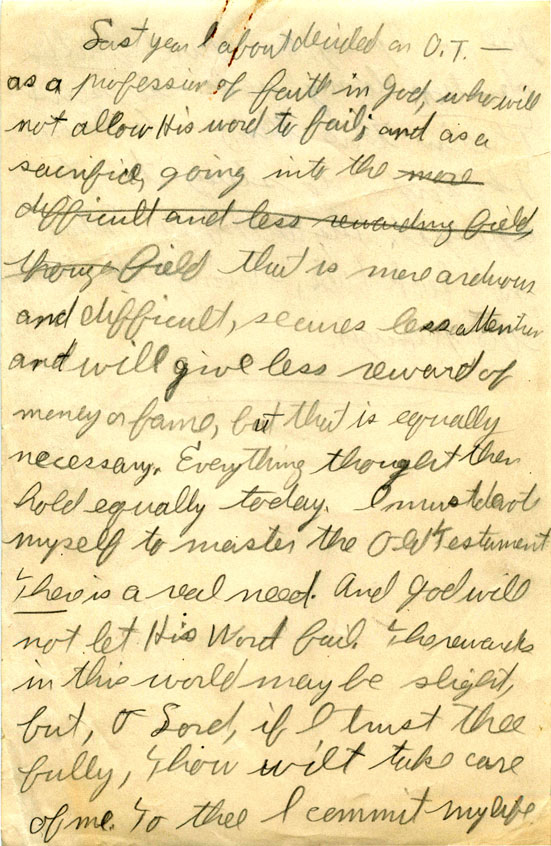 Last year I about decided on O.T. —
as a profession of faith in God, who will
not allow His word to fail; and as a
sacrifice, going into the more
difficult and less rewarding field,
though field that is more arduous
and difficult, secures less attention
and will give less reward of
money or fame, but that is equally
necessary. Everything thought then
hold equally today. I must devote
myself to master the Old Testament
There is a real need. And God will
not let His Word fail. The rewards
in this world may be slight,
but, O Lord, if I trust thee
fully, Thou wilt take care
of me. To thee I commit my life